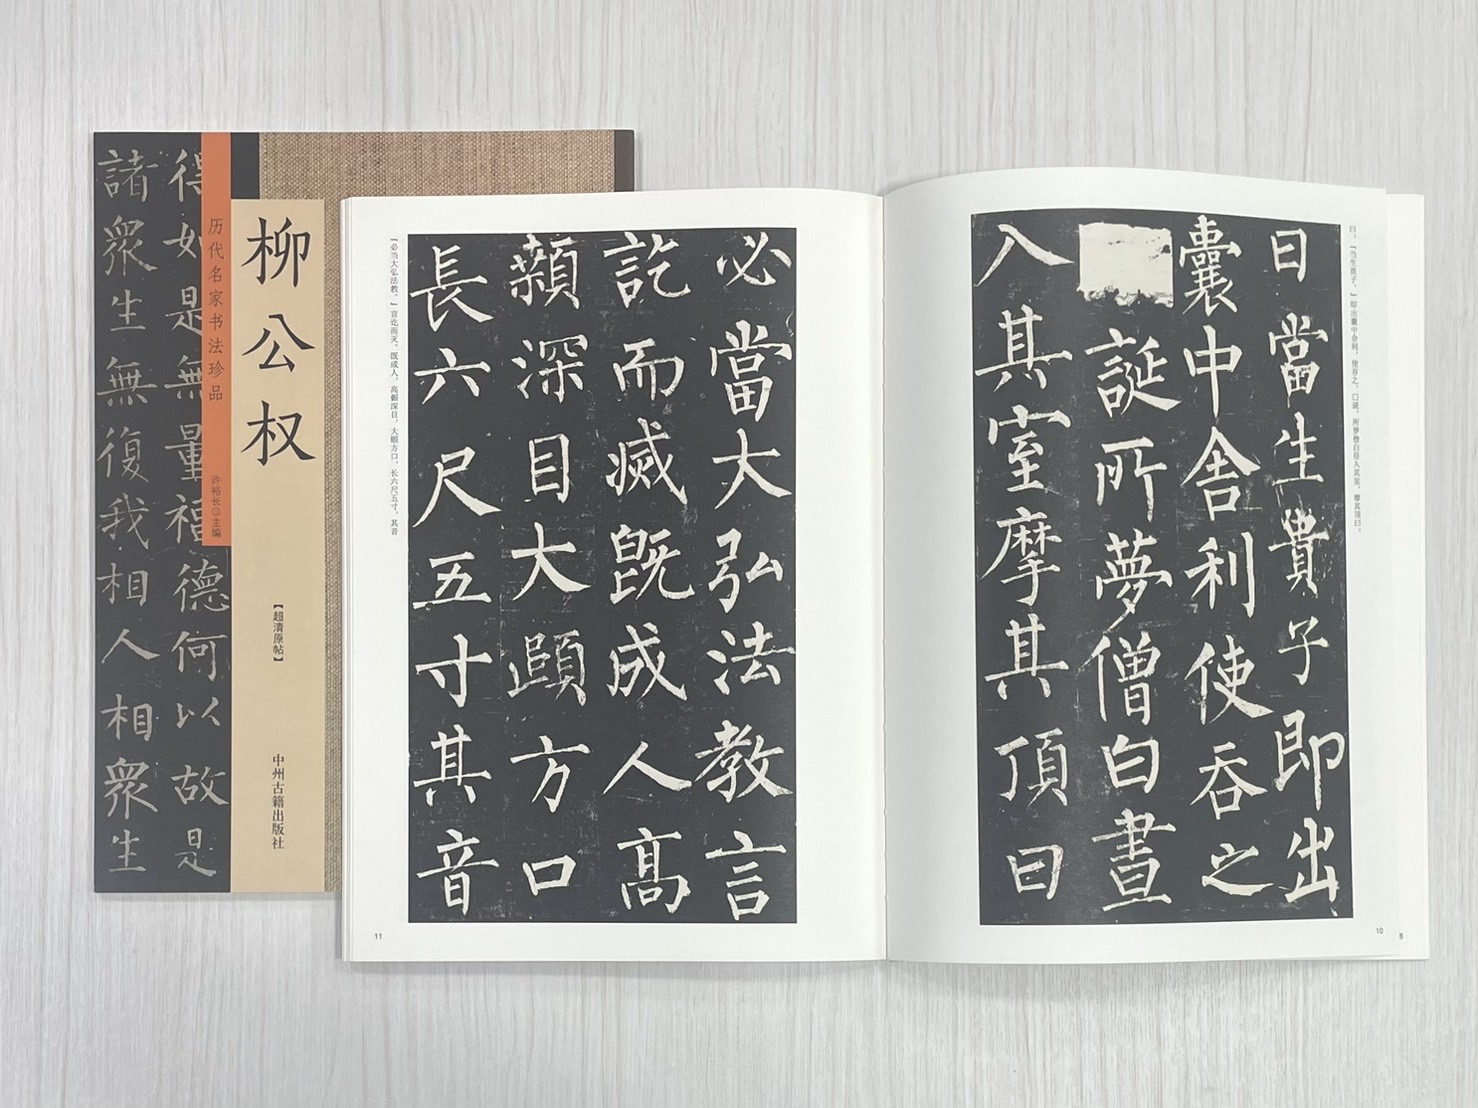 得如是無量福德何以故是
諸眾生無復我相人相眾生
历代名家书法珍品
许裕长⊙主编
柳公权
【超清原帖】
中州古籍出版社
曰，『当生贵子。』即出囊中舍利，使吞之。口诞，所梦僧白昼入其室，摩其顶曰：
曰當生貴子即出
囊中舍利使吞之
誕所夢僧白晝
入其室摩其頂曰
10
8
必當大弘法教言
訖而滅既成人高
顙深目大頤方口
長六尺五寸其音
『必当大弘法教。』言讫而灭。既成人，高颡深目，大颐方口，长六尺五寸，其音
11